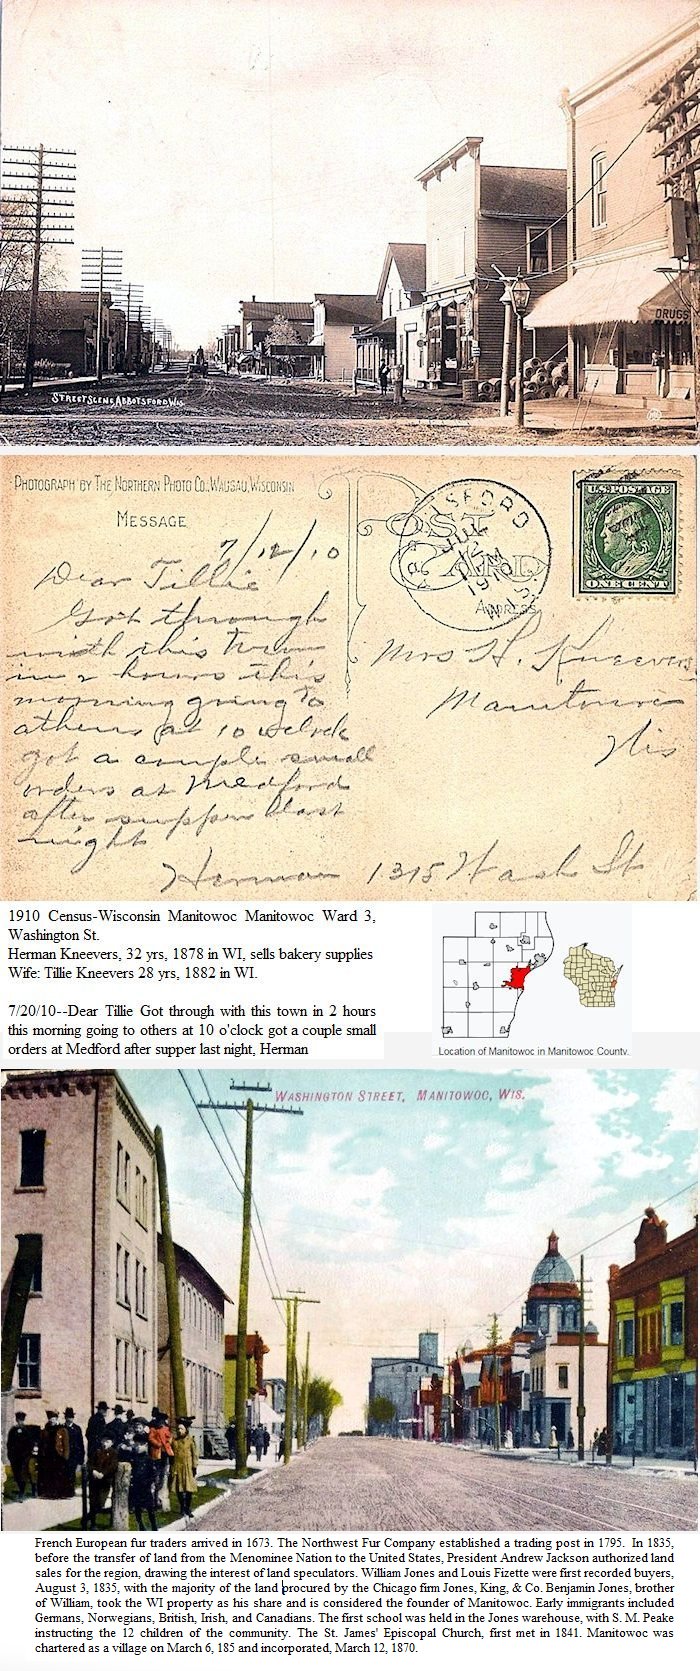 DRUGS
STREET SCENE ABBOTSFORD WIS.
PHOTOGRAPH BY THE NORTHERN PHOTO CO., WAUSAU, WISCONSIN
MESSAGE
POST CARD
U.S. POSTAGE
ONE CENT
ADDRESS
7/12/10
Dear Tillie
Got through
with this town
in 2 hours this
morning going to
athens at 10 oclock
got a couple small
orders at Medford
after supper last
night
Herman
Mrs H. Kneevers
Manitowoc
Wis
1315 Wash St
1910 Census-Wisconsin Manitowoc Manitowoc Ward 3,
Washington St.
Herman Kneevers, 32 yrs, 1878 in WI, sells bakery supplies
Wife: Tillie Kneevers 28 yrs, 1882 in WI.
7/20/10--Dear Tillie Got through with this town in 2 hours
this morning going to others at 10 o'clock got a couple small
orders at Medford after supper last night, Herman
Location of Manitowoc in Manitowoc County.
WASHINGTON STREET, MANITOWOC, WIS.
French European fur traders arrived in 1673. The Northwest Fur Company established a trading post in 1795. In 1835,
before the transfer of land from the Menominee Nation to the United States, President Andrew Jackson authorized land
sales for the region, drawing the interest of land speculators. William Jones and Louis Fizette were first recorded buyers,
August 3, 1835, with the majority of the land procured by the Chicago firm Jones, King, & Co. Benjamin Jones, brother
of William, took the WI property as his share and is considered the founder of Manitowoc. Early immigrants included
Germans, Norwegians, British, Irish, and Canadians. The first school was held in the Jones warehouse, with S. M. Peake
instructing the 12 children of the community. The St. James' Episcopal Church, first met in 1841. Manitowoc was
chartered as a village on March 6, 185 and incorporated, March 12, 1870.